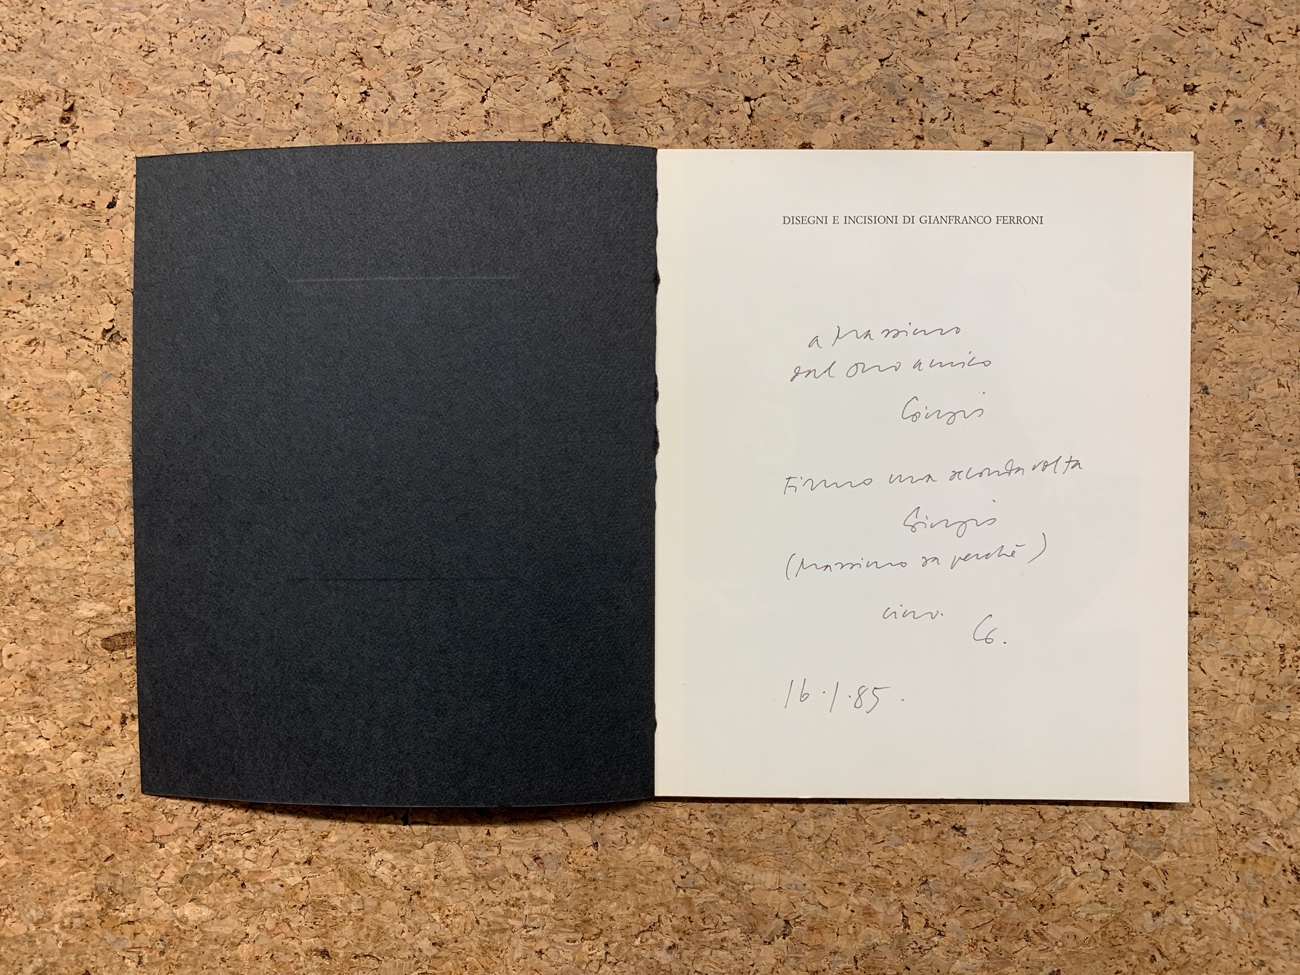 DISEGNI E INCISIONI DI GIANFRANCO FERRONI
a Massimo
dal suo amico
Giorgio
Firmo una seconda volta
Giorgio
(Massimo sa perché)
ciao.
G.
16.1.85.